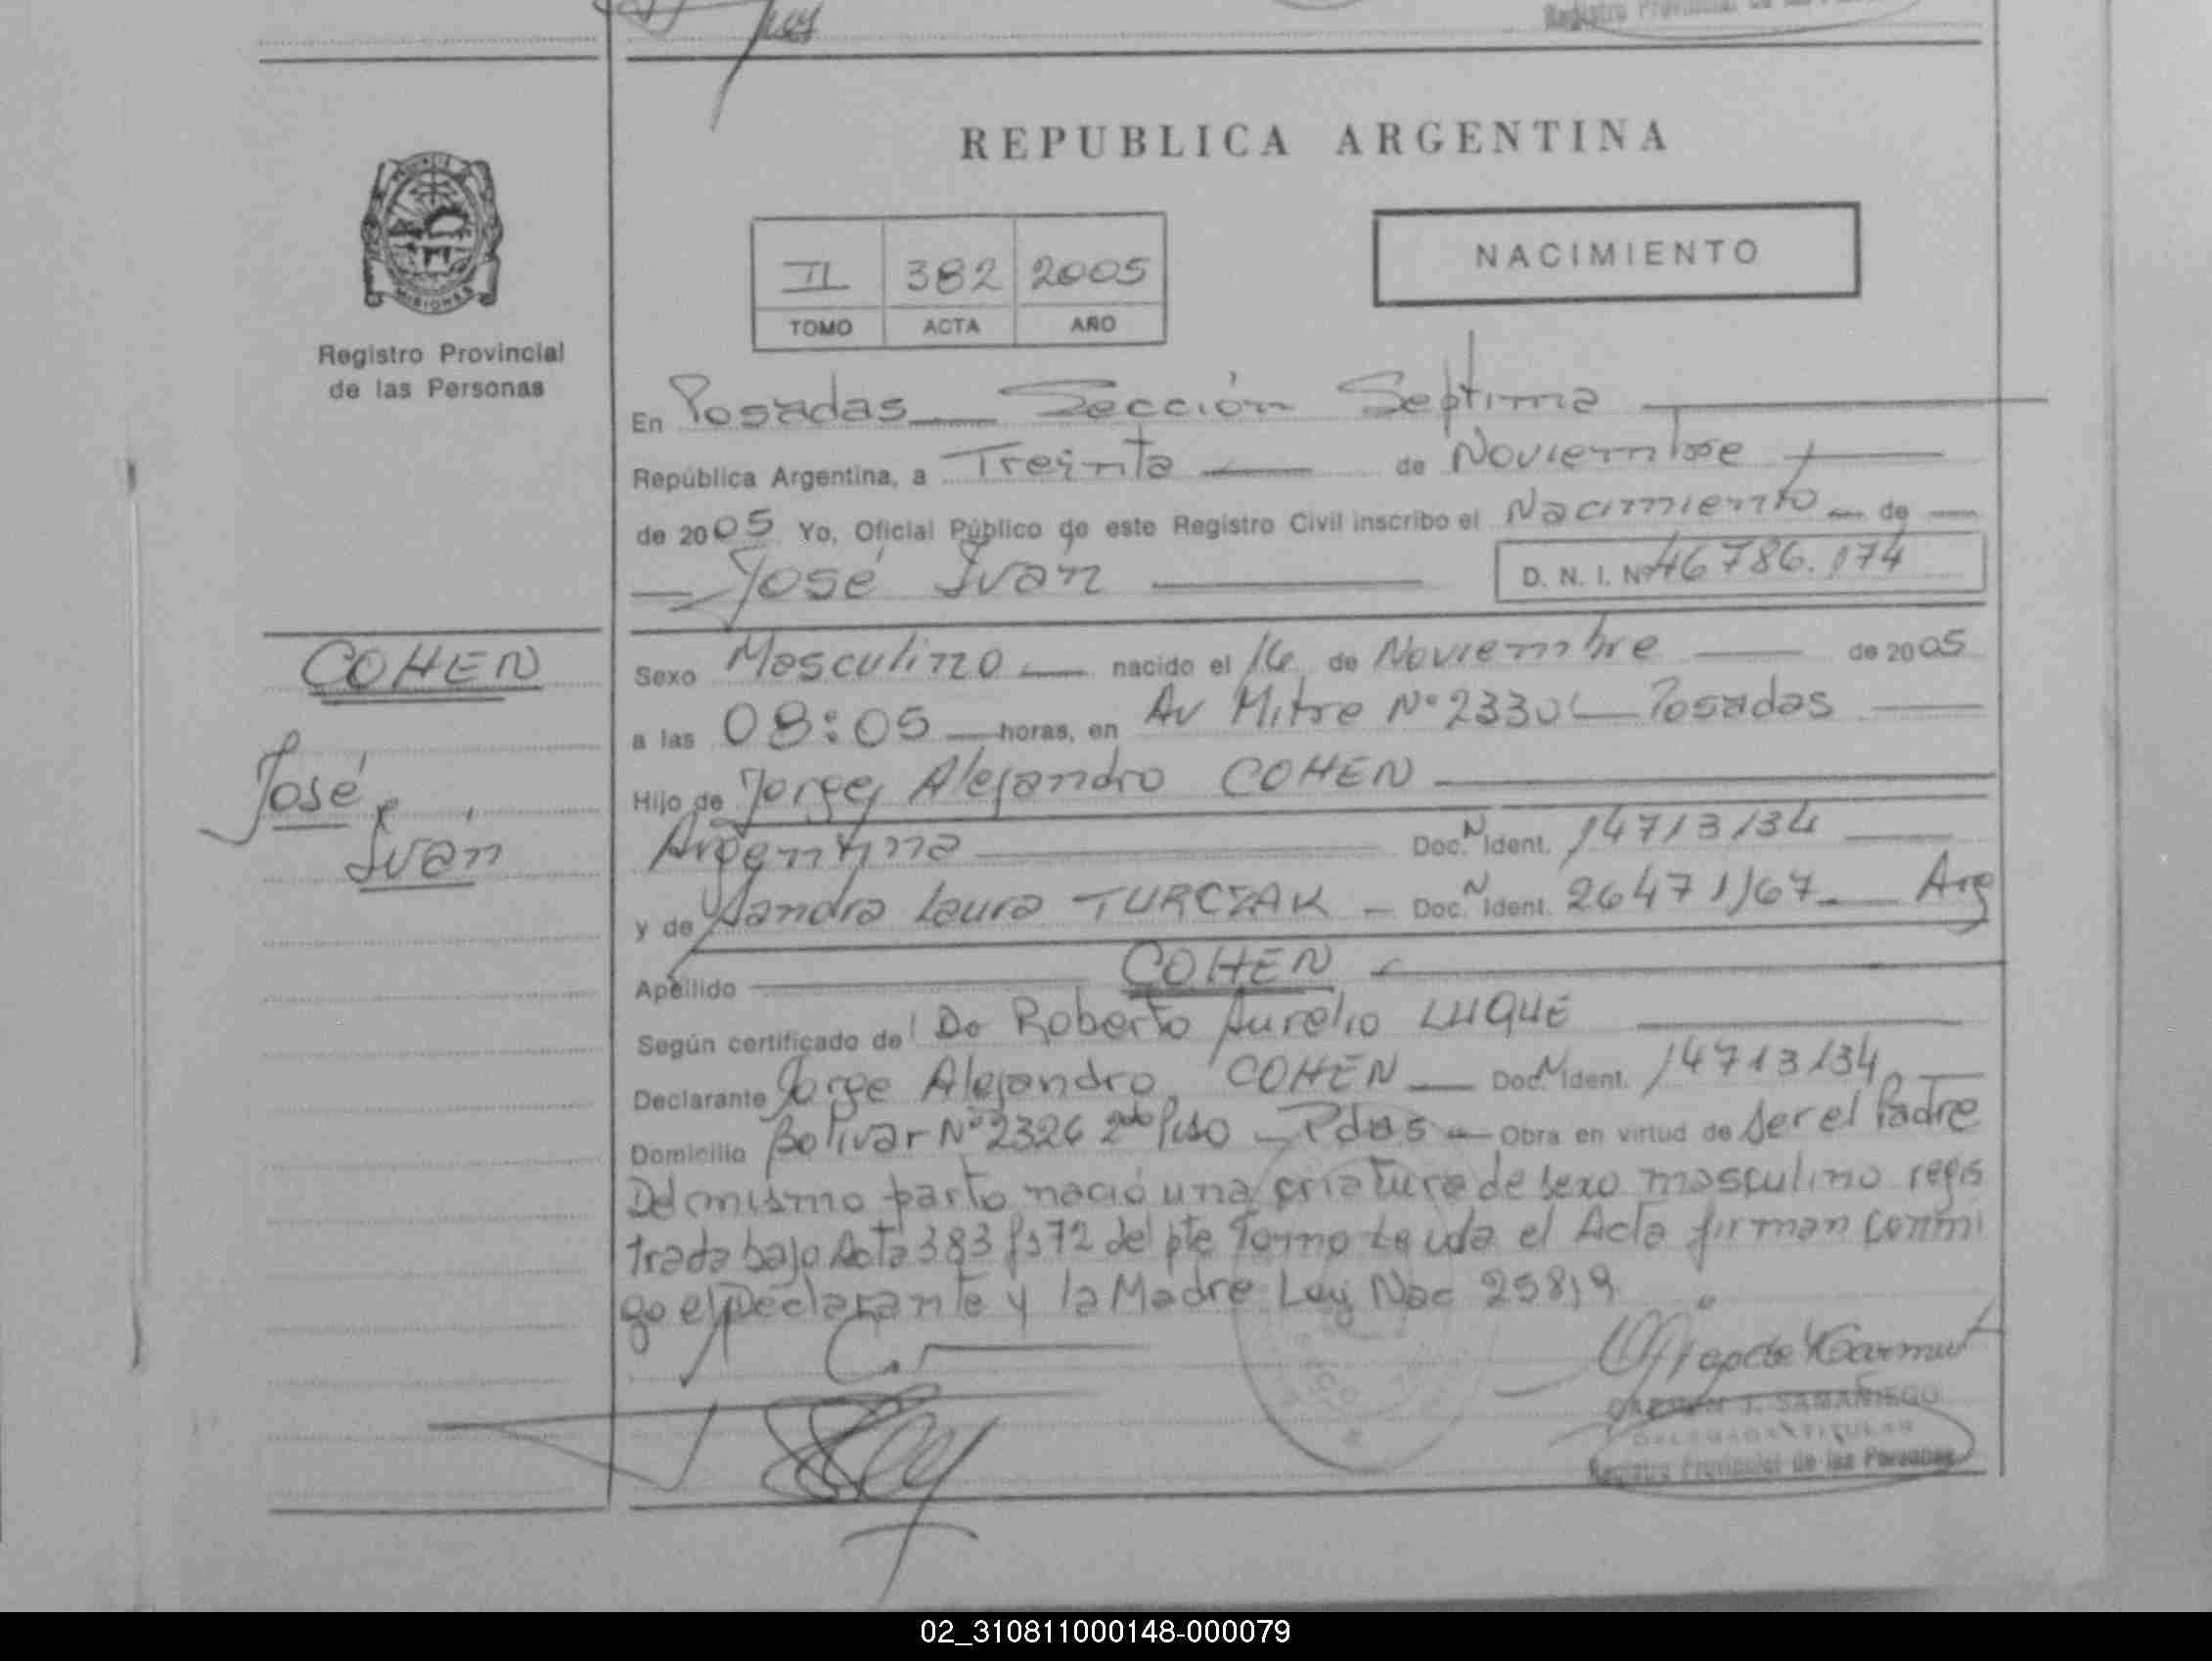 REPUBLICA ARGENTINA
MISIONES
Registro Provincial
de las Personas
NACIMIENTO
II 382 2005
TOMO ACTA AÑO
En Posadas Sección Septima
República Argentina, a Treinta de Noviembre
de 2005 Yo, Oficial Público de este Registro Civil inscribo el Nacimiento de
José Iván D. N. I. Nº 46786.174
COHEN
José
Iván
Sexo Masculino nacido el 16 de Noviembre de 2005
a las 08:05 horas, en Av Mitre Nº 2330 Posadas
Hijo de Jorge Alejandro COHEN
Argentina Doc. N Ident. 14713134
y de Sandra Laura TURCZAK Doc. N Ident. 26471167 Arg
Apellido COHEN
Según certificado de Roberto Aurelio LUQUE
Declarante Jorge Alejandro COHEN Doc. N Ident. 14713134
Domicilio Bolivar Nº 2326 2do Piso - Pdas - Obra en virtud de ser el Padre
Del mismo parto nació una criatura de sexo masculino regis
trada bajo Acta 383 fs 72 del pte Tomo Leida el Acta firman conmi
go el Declarante y la Madre Ley Nac 25819
CARMEN J. SAMANIEGO
DELEGADA TITULAR
Registro Provincial de las Personas
02_310811000148-000079